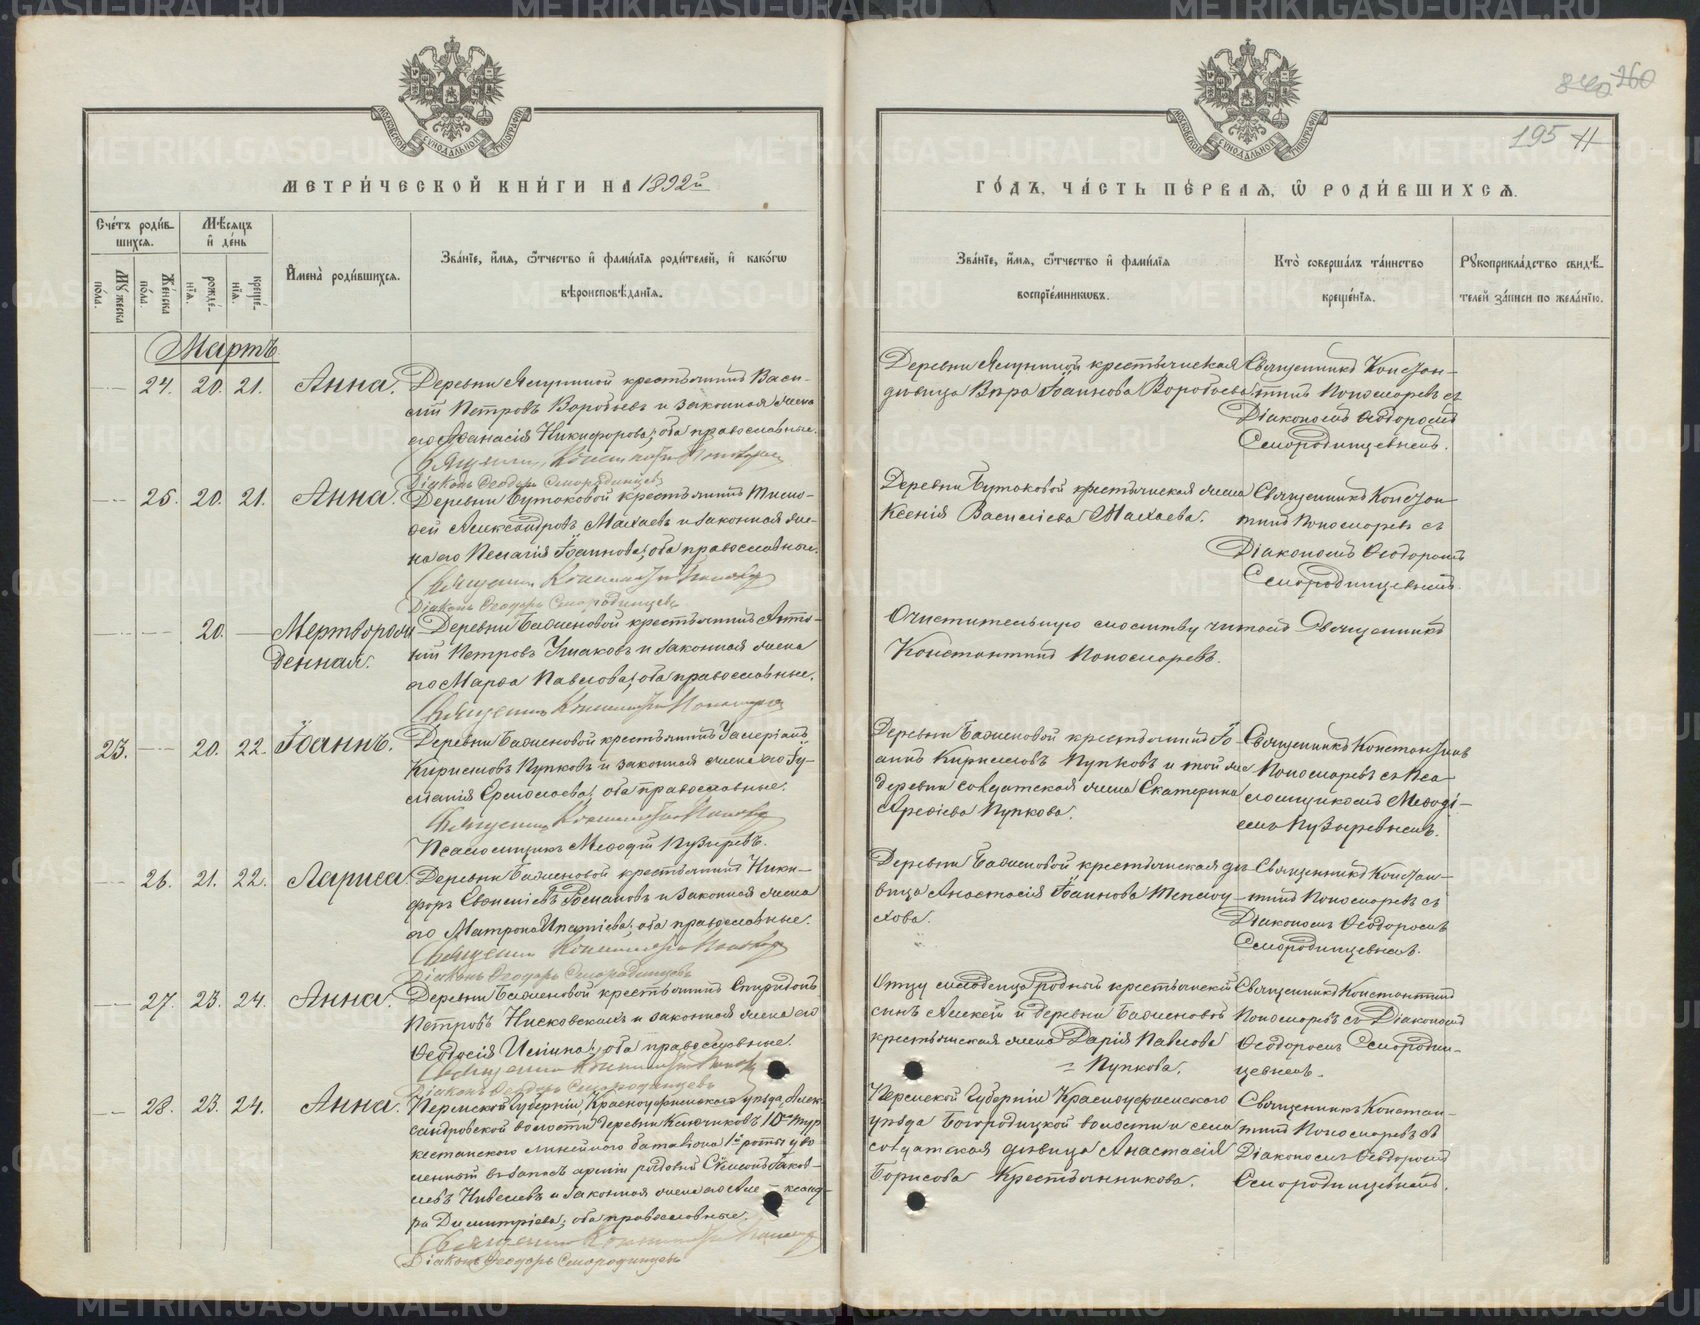 840 260
195 Н
МЕТРИ́ЧЕСКОЙ КНИ́ГИ НА 1892й
ГО́ДЪ, ЧА́СТЬ ПЕ́РВАЯ, Ѡ РОДИ́ВШИХСЯ.
Сче́тъ роди́в-
шихся.
Му́жеска
по́ла.
Же́нска
по́ла.
Мѣ́сяцъ
и҆ де́нь
рожде́-
нїя.
креще́-
нїя.
И҆мена̀ роди́вшихся.
Зва́нїе, и҆́мя, ѻ҆́тчество и҆ фами́лїя роди́телей, и҆ како́гѡ
вѣроисповѣ́данїя.
Зва́нїе, и҆́мя, ѻ҆́тчество и҆ фами́лїя
воспрїе́мникѡвъ.
Кто̀ соверша́лъ та́инство
креще́нїя.
Рꙋкоприкла́дство свидѣ́-
телей за́писи по жела́нїю.
Мартъ
24. 20. 21. Анна.
Деревни Ячушной крестьянинъ Васи-
лій Петровъ Воробьевъ и законная жена
его Аѳанасія Никифорова; оба православные.
Священникъ Константинъ Пономаревъ
Діаконъ Ѳеодоръ Смородинцевъ
Деревни Ячушной крестьянская
дѣвица Вѣра Іоаннова Воробьева
Священникъ Констан-
тинъ Пономаревъ съ
Діакономъ Ѳеодоромъ
Смородинцевымъ.
25. 20. 21. Анна.
Деревни Бутаковой крестьянинъ Тимо-
ѳей Александровъ Махаевъ и законная же-
на его Пелагія Іоаннова; оба православные.
Священникъ Константинъ Пономаревъ
Діаконъ Ѳеодоръ Смородинцевъ
Деревни Бутаковой крестьянская жена
Ксенія Василіева Махаева.
Священникъ Констан-
тинъ Пономаревъ съ
Діакономъ Ѳеодоромъ
Смородинцевымъ.
20. Мертворож-
денная.
Деревни Баженовой крестьянинъ Анто-
ній Петровъ Ушаковъ и законная жена
его Марѳа Павлова; оба православные.
Священникъ Константинъ Пономаревъ
Очистительную молитву читалъ Священникъ
Константинъ Пономаревъ.
23. 20. 22. Іоаннъ.
Деревни Баженовой крестьянинъ Валеріанъ
Кирилловъ Пупковъ и законная жена его Іу-
ліанія Ермолаева; оба православные.
Священникъ Константинъ Пономаревъ
Псаломщикъ Меѳодій Пузыревъ.
Деревни Баженовой крестьянинъ Іо-
аннъ Кирилловъ Пупковъ и той же
деревни солдатская жена Екатерина
Арефіева Пупкова.
Священникъ Константинъ
Пономаревъ съ Пса-
ломщикомъ Меѳоді-
емъ Пузыревымъ.
26. 21. 22. Лариса.
Деревни Баженовой крестьянинъ Ники-
форъ Евгеніевъ Романовъ и законная жена
его Матрона Ипатіева; оба православные.
Священникъ Константинъ Пономаревъ
Діаконъ Ѳеодоръ Смородинцевъ
Деревни Баженовой крестьянская дѣ-
вица Анастасія Іоаннова Тепло́у-
хова.
Священникъ Констан-
тинъ Пономаревъ съ
Діакономъ Ѳеодоромъ
Смородинцевымъ.
27. 23. 24. Анна.
Деревни Баженовой крестьянинъ Спиридонъ
Петровъ Нисковскихъ и законная жена его
Ѳеодосія Исаина; оба православные.
Священникъ Константинъ Пономаревъ
Діаконъ Ѳеодоръ Смородинцевъ
Отцу младенца родный крестьянскій
сынъ Алексѣй и деревни Баженовой
крестьянская жена Дарія Павлова
= Пупкова.
Священникъ Константинъ
Пономаревъ съ Діакономъ
Ѳеодоромъ Смородин-
цевымъ.
28. 23. 24. Анна.
Пермской Губерніи, Красноуфимскаго уѣзда, Алек-
сандровской волости деревни Ключиковъ 10го Тур-
кестанского линейнаго баталіона 1й роты уво-
ленный въ запасъ арміи рядовой Симеонъ Іаков-
левъ Нивелевъ и законная жена его Але-ксанд-
ра Димитріева; оба православные.
Священникъ Константинъ Пономаревъ
Діаконъ Ѳеодоръ Смородинцевъ
Пермской Губерніи Красноуфимскаго
уѣзда Богородицкой волости и села
солдатская дѣвица Анастасія
Борисова Крестьянникова.
Священникъ Констан-
тинъ Пономаревъ съ
Діакономъ Ѳеодоромъ
Смородинцевымъ.